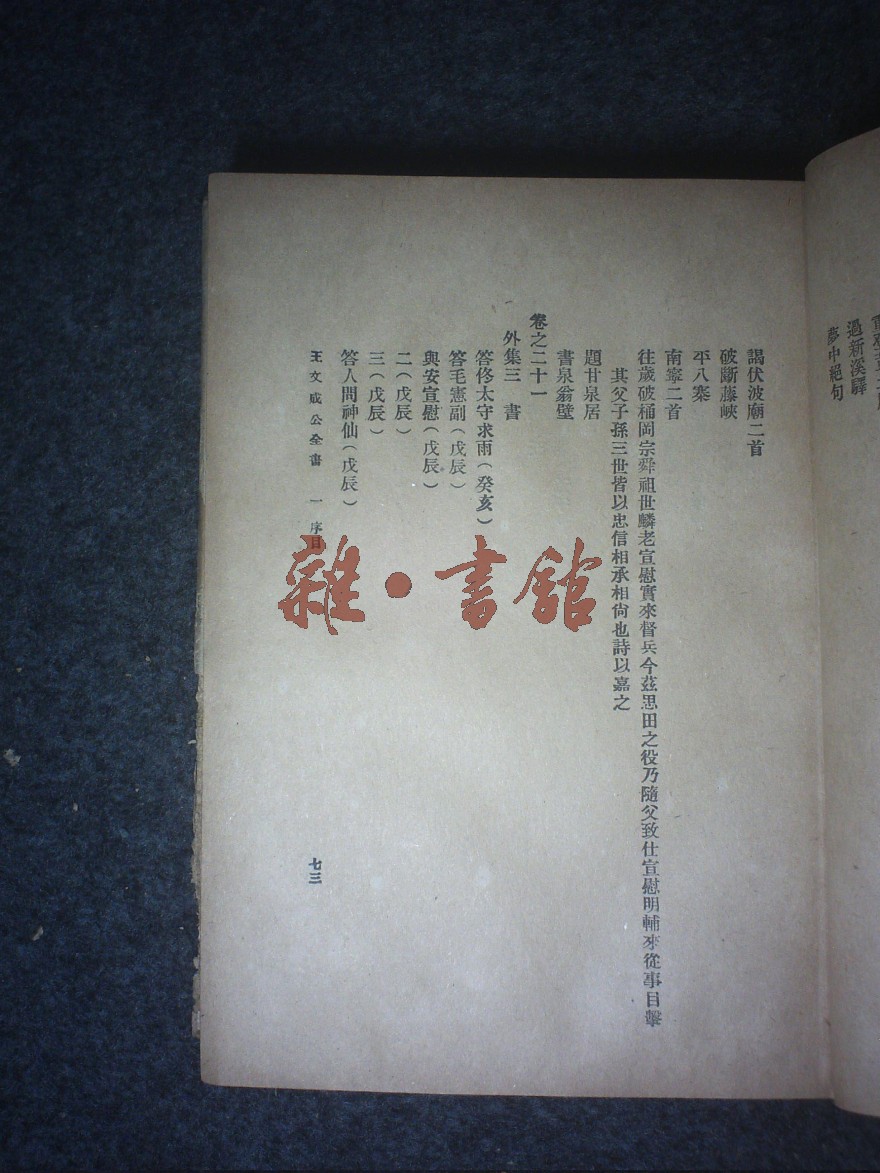 過新溪驛
夢中絕句
謁伏波廟二首
破斷藤峽
平八寨
南寧二首
往歲破桶岡宗舜祖世麟老宣慰實來督兵今茲思田之役乃隨父致仕宣慰明輔來從事目擊
其父子孫三世皆以忠信相承相尙也詩以嘉之
題甘泉居
書泉翁壁
卷之二十一
外集三 書
答佟太守求雨(癸亥)
答毛憲副(戊辰)
與安宣慰(戊辰)
二(戊辰)
三(戊辰)
答人問神仙(戊辰)
王文成公全書 一 序目
七三
雜·書館